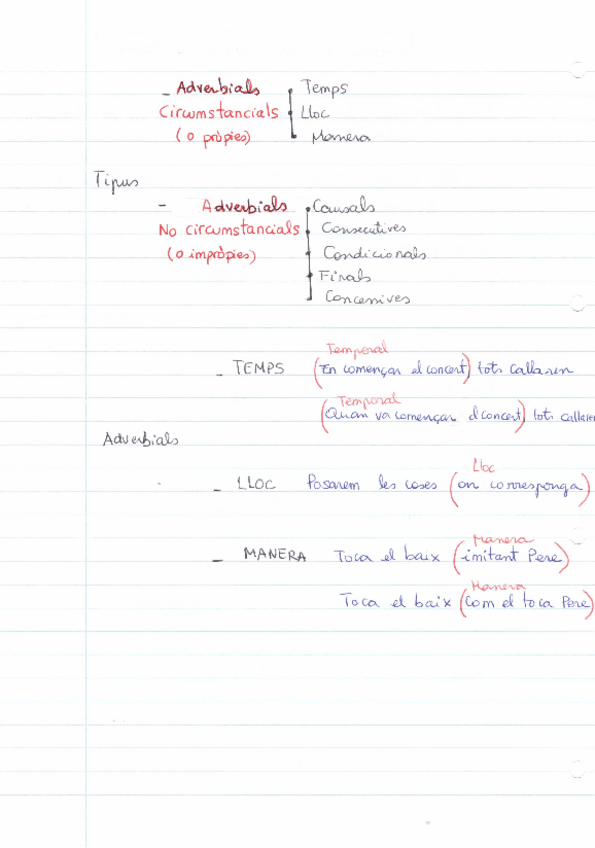 - Adverbials • Temps
Circumstancials • Lloc
(o pròpies) • Manera
Tipus
- Adverbials • Causals
No circumstancials • Consecutives
(o impròpies) • Condicionals
• Finals
Concessives
Temporal
- TEMPS (En començar el concert) tots callaren
Temporal
(Quan va començar el concert) tots callaren
Adverbials
Lloc
- LLOC Posarem les coses (on corresponga)
Manera
- MANERA Toca el baix (imitant Pere)
Manera
Toca el baix (com el toca Pere)